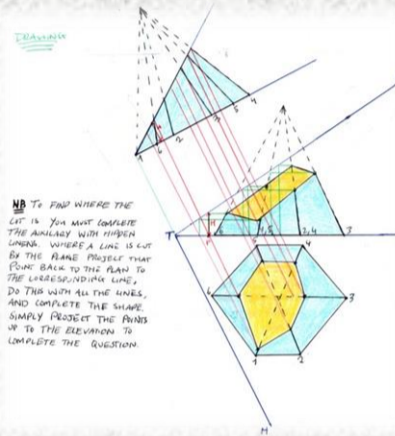 DRAWINGS
NB TO FIND WHERE THE
CUT IS YOU MUST COMPLETE
THE AUXILARY WITH HIDDEN
LINES. WHERE A LINE IS CUT
BY THE PLANE PROJECT THAT
POINT BACK TO THE PLAN TO
THE CORRESPONDING LINE,
DO THIS WITH ALL THE LINES,
AND COMPLETE THE SHAPE.
SIMPLY PROJECT THE POINTS
UP TO THE ELEVATION TO
COMPLETE THE QUESTION.
1 6 2 3 5 4
T
1,5 2,4 3
5 4
6 3
1 2
H